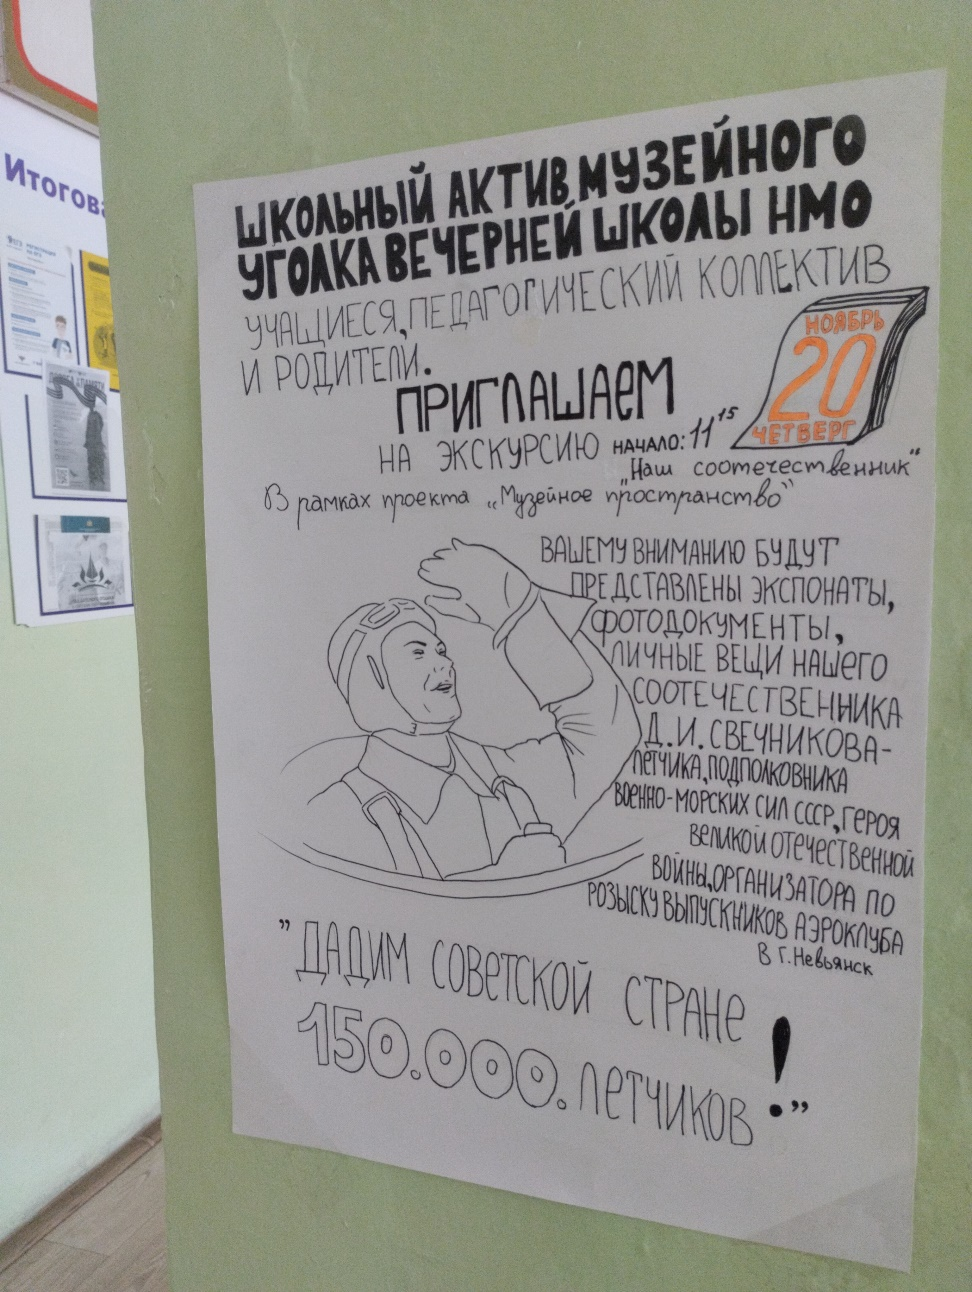 Итогова
ШКОЛЬНЫЙ АКТИВ МУЗЕЙНОГО
УГОЛКА ВЕЧЕРНЕЙ ШКОЛЫ НМО
УЧАЩИЕСЯ, ПЕДАГОГИЧЕСКИЙ КОЛЛЕКТИВ
И РОДИТЕЛИ.
НОЯБРЬ
20
ЧЕТВЕРГ
ПРИГЛАШАЕМ
НА ЭКСКУРСИЮ НАЧАЛО: 11 15
„Наш соотечественник“
В рамках проекта „Музейное пространство“
ВАШЕМУ ВНИМАНИЮ БУДУТ
ПРЕДСТАВЛЕНЫ ЭКСПОНАТЫ,
ФОТОДОКУМЕНТЫ,
ЛИЧНЫЕ ВЕЩИ НАШЕГО
СООТЕЧЕСТВЕННИКА
Д.И. СВЕЧНИКОВА-
ЛЕТЧИКА, ПОДПОЛКОВНИКА
ВОЕННО-МОРСКИХ СИЛ СССР, ГЕРОЯ
ВЕЛИКОЙ ОТЕЧЕСТВЕННОЙ
ВОЙНЫ, ОРГАНИЗАТОРА ПО
РОЗЫСКУ ВЫПУСКНИКОВ АЭРОКЛУБА
В Г. Невьянск
”ДАДИМ СОВЕТСКОЙ СТРАНЕ
150.000. ЛЕТЧИКОВ!”